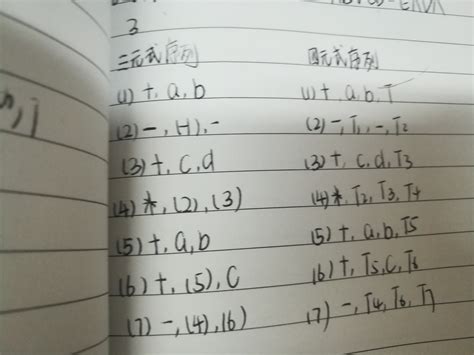 3
三元式序列 四元式序列
(1) +, a, b (1) +, a, b, T
(2) -, (1), - (2) -, T1, -, T2
(3) +, c, d (3) +, c, d, T3
(4) *, (2), (3) (4) *, T2, T3, T4
(5) +, a, b (5) +, a, b, T5
(6) +, (5), C (6) +, T5, C, T6
(7) -, (4), (6) (7) -, T4, T6, T7